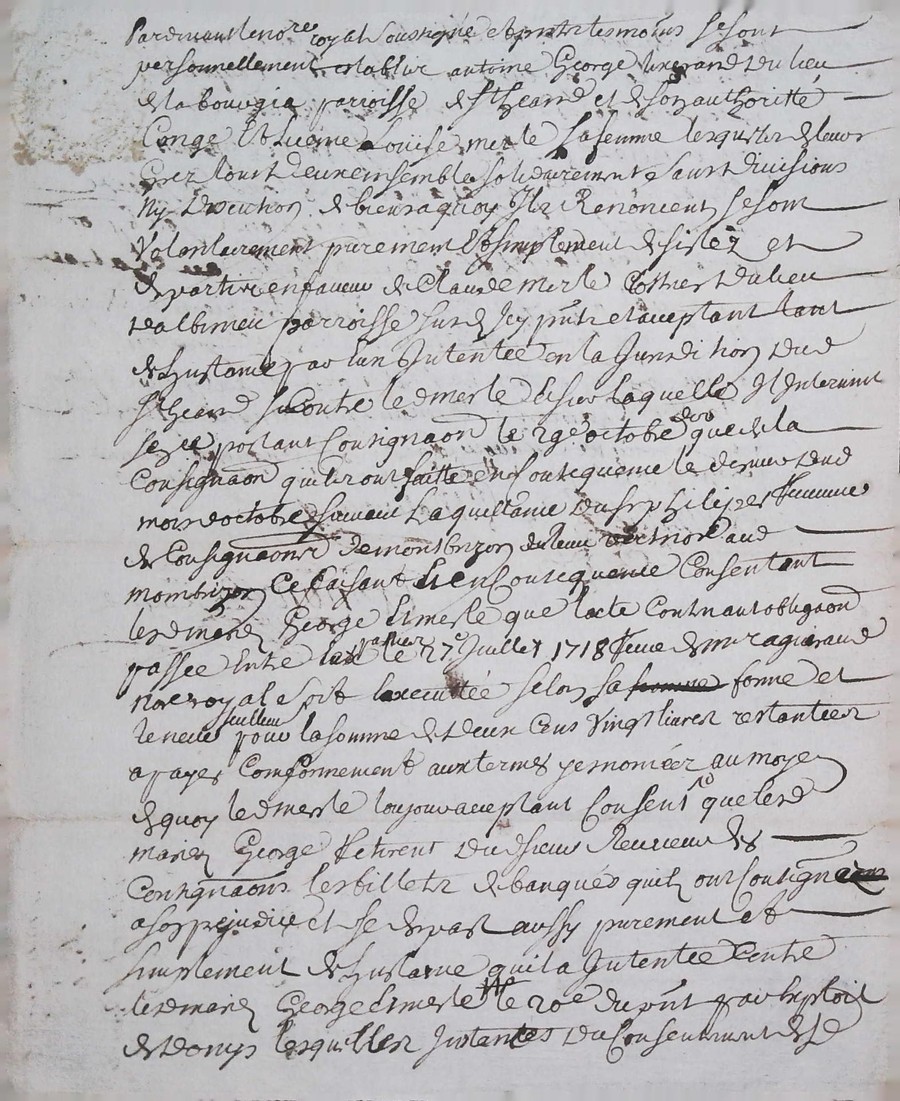 Pardevant le no.re royal soussigné et pnts tesmoins se sont
personnellement establis antoine George du lieu
de la bougia parroisse de st heand et de son authoritte
Conge Louise merle sa femme lesquels de leur
Grez sont deux ensemble solidairement sans divisions
Ny discution de biens a quoy Ilz Renoncent se sont
Volontairement purement et simplement desistez et
departis en faveur de Claude merle du lieu
d'albuneu parroisse sur d Icy pnt et acceptant tant
de L'Instance par luy Intentée en la Jurisdition dud
st heand Contre led merle sur laquelle Il Intervint
portant Consignaon le 29e octobre der que de la
Consignaon quils ont faitte en Consequence le dernier dud
mois d'octobre suivant La quittance du sr philipes
de Consignaons de montbrizon aud
mombrizon Ce faisant et en Consequence Consentent
lesd mariez George et merle que lacte Contenant obligaon
passée entre le 27e Juillet 1718 ragiraud
no.re royal soit executtée selon sa forme et
teneur seullem pour la somme de deux Cens Vingt livres restantes
a payer Conformement aux termes y enoncéez au moyen
de quoy led merle toujours acceptant Consent que lesd
mariez George retirent du sieur Receveur des
Consignaons les billets de banque quils ont Consigné
a son prejudice et se depart aussy purement et
simplement de L'Instance quil a Intentée Contre
lesd mariez George et merle le 20e du pnt par Exploit
de lesquelles Instances du Consentement de